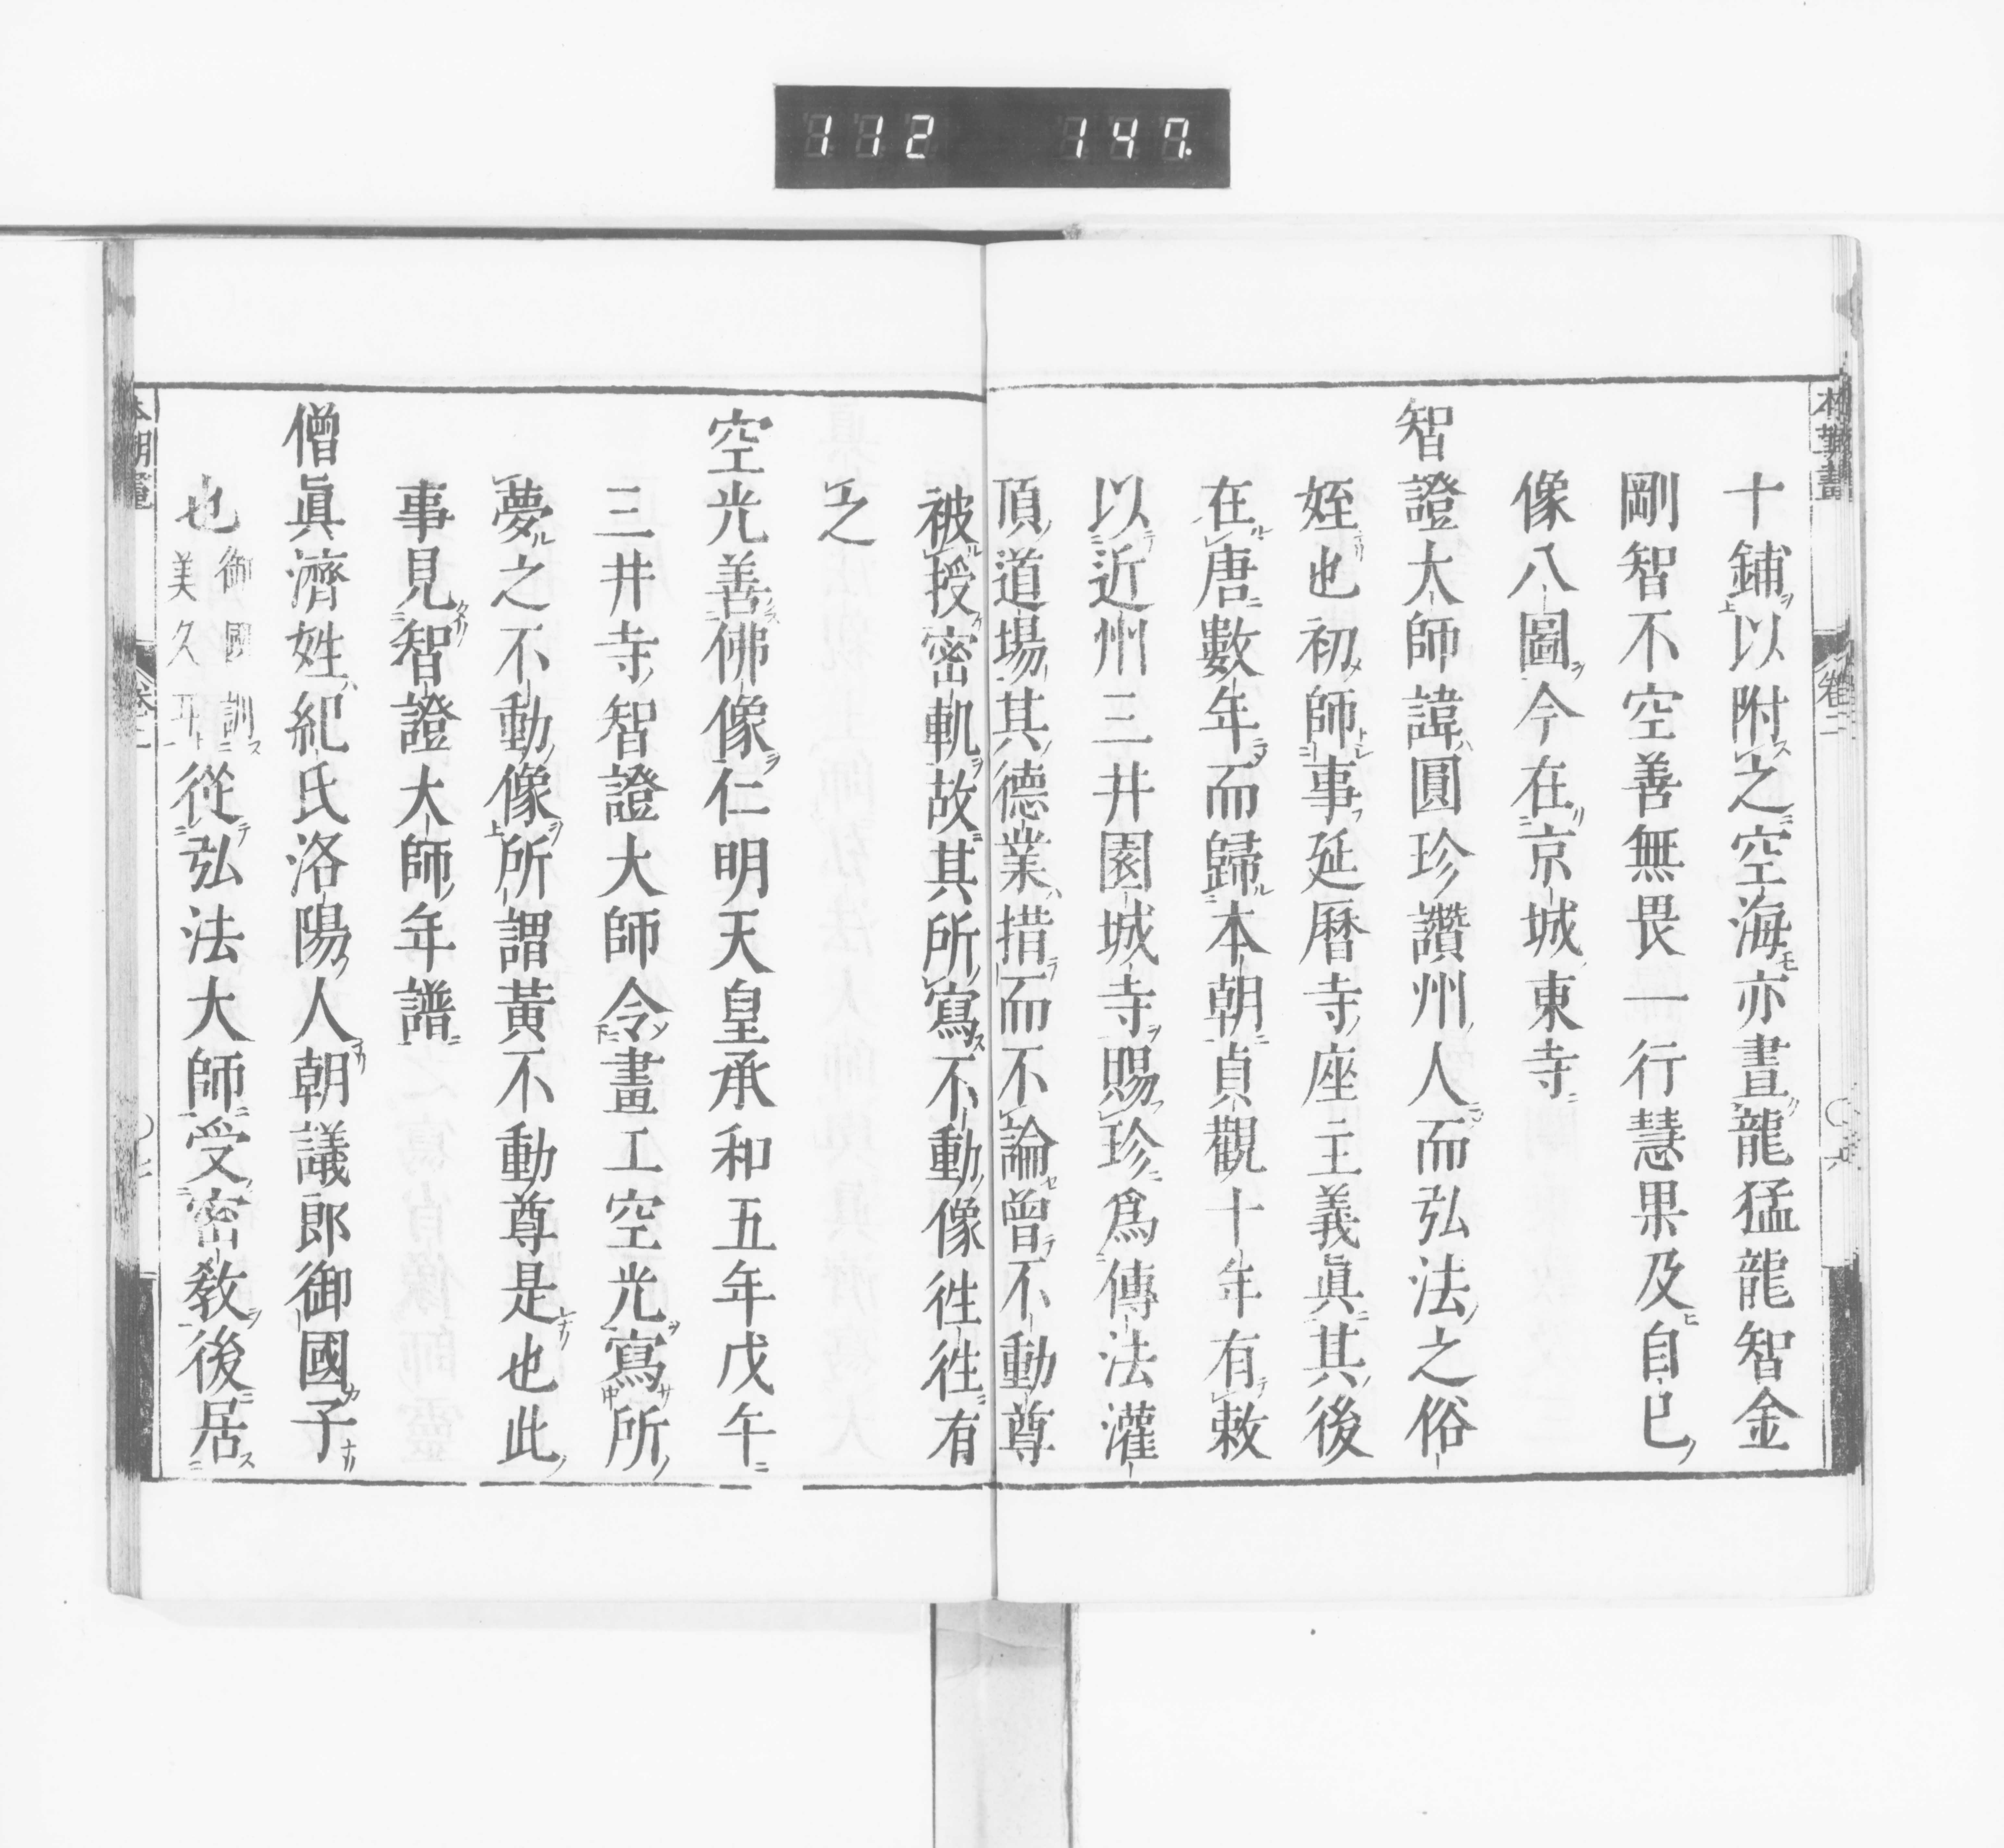 112 147
十鋪以附之空海亦畫龍猛龍智金
剛智不空善無畏一行慧果及自巳
像八圖今在京城東寺
智證大師諱圓珍讚州人而弘法之俗
姪也初師事延曆寺座主義眞其後
在唐數年而歸本朝貞觀十年有敕
以近州三井園城寺賜珍爲傳法灌
頂道場其德業措而不論曾不動尊
被授密軌故其所寫不動像徃徃有
之
空光善佛像仁明天皇承和五年戊午
三井寺智證大師令畫工空光寫所
夢之不動像所謂黃不動尊是也此
事見智證大師年譜
僧眞濟姓紀氏洛陽人朝議郎御國子
也御國訓美久耳從弘法大師受密敎後居